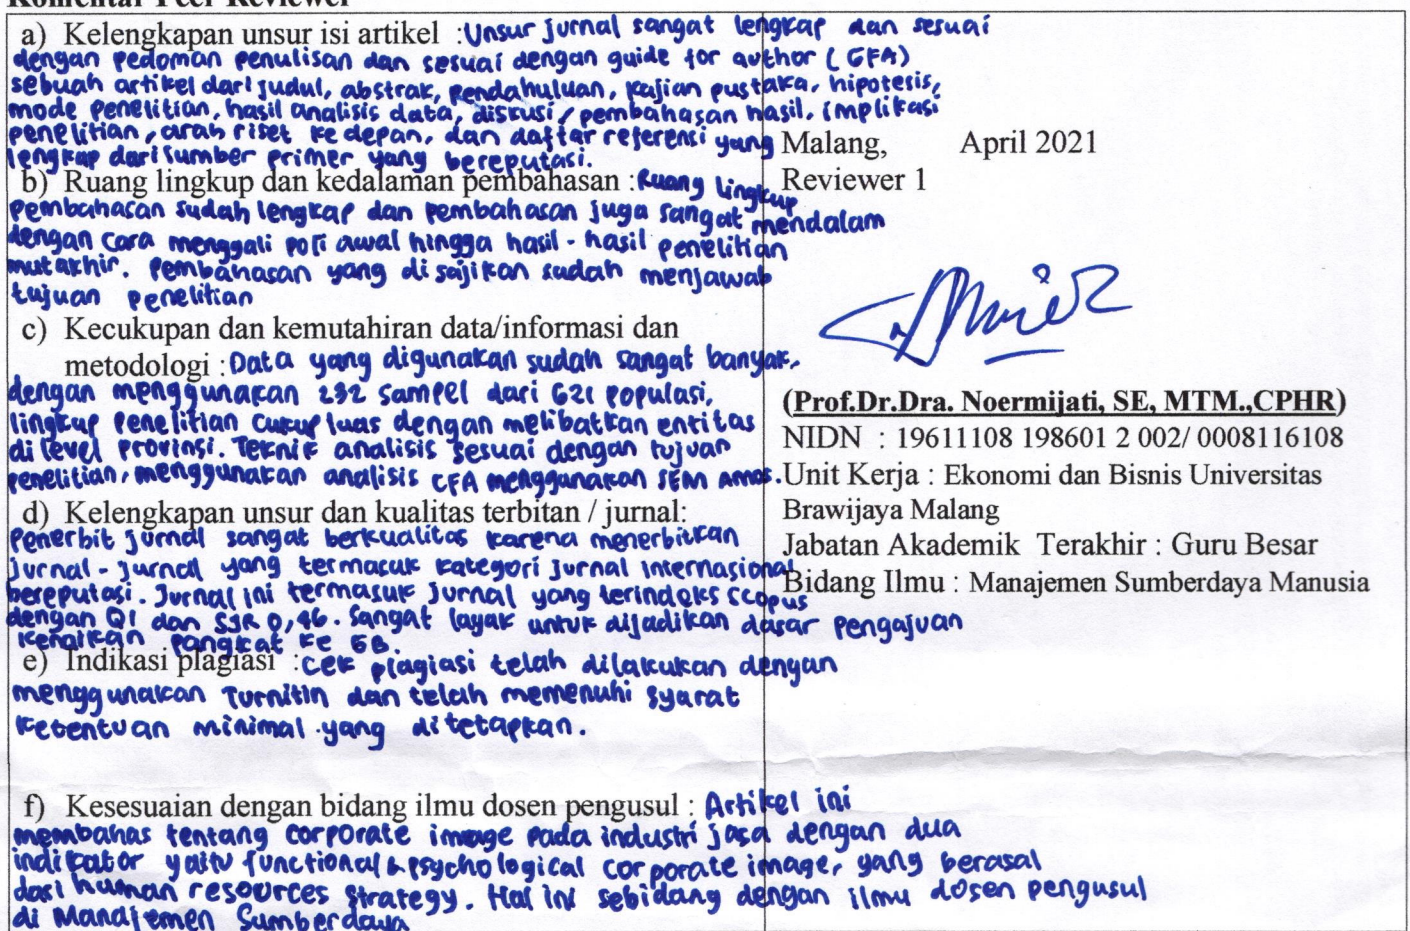 Komentar Peer Reviewer
a) Kelengkapan unsur isi artikel : Unsur jurnal sangat lengkap dan sesuai
dengan pedoman penulisan dan sesuai dengan guide for author (GFA)
sebuah artikel dari judul, abstrak, pendahuluan, kajian pustaka, hipotesis,
mode penelitian, hasil analisis data, diskusi/pembahasan hasil, implikasi
penelitian, arah riset ke depan, dan daftar referensi yang
lengkap dari sumber primer yang bereputasi.
b) Ruang lingkup dan kedalaman pembahasan : Ruang lingkup
pembahasan sudah lengkap dan pembahasan juga sangat mendalam
dengan cara menggali awal hingga hasil-hasil penelitian
mutakhir. Pembahasan yang disajikan sudah menjawab
tujuan penelitian
c) Kecukupan dan kemutahiran data/informasi dan
metodologi : Data yang digunakan sudah sangat banyak,
dengan menggunakan 232 sampel dari 621 populasi,
lingkup penelitian cukup luas dengan melibatkan entitas
di level provinsi. Teknik analisis sesuai dengan tujuan
penelitian, menggunakan analisis CFA menggunakan SEM Amos.
d) Kelengkapan unsur dan kualitas terbitan / jurnal:
Penerbit jurnal sangat berkualitas karena menerbitkan
jurnal-jurnal yang termasuk kategori jurnal internasional
bereputasi. Jurnal ini termasuk jurnal yang terindeks Scopus
dengan Q1 dan SJR 0,46. Sangat layak untuk dijadikan dasar pengajuan
kenaikan pangkat ke GB.
e) Indikasi plagiasi : Cek plagiasi telah dilakukan dengan
menggunakan Turnitin dan telah memenuhi syarat
ketentuan minimal yang ditetapkan.
f) Kesesuaian dengan bidang ilmu dosen pengusul : Artikel ini
membahas tentang corporate image pada industri jasa dengan dua
indikator yaitu functional & psychological corporate image, yang berasal
dari human resources strategy. Hal ini sebidang dengan ilmu dosen pengusul
di Manajemen Sumberdaya
Malang, April 2021
Reviewer 1
(Prof.Dr.Dra. Noermijati, SE, MTM.,CPHR)
NIDN : 19611108 198601 2 002/ 0008116108
Unit Kerja : Ekonomi dan Bisnis Universitas
Brawijaya Malang
Jabatan Akademik Terakhir : Guru Besar
Bidang Ilmu : Manajemen Sumberdaya Manusia